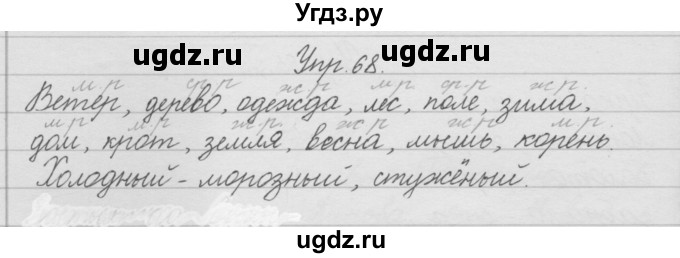 Угдз.ру
ugdz.ru ugdz.ru
Упр. 68.
м р ср р ж р м р ср. р ж р
Ветер, дерево, одежда, лес, поле, зима,
м р м. р ж р ж р ж р м. р
дом, крот, земля, весна, мышь, корень.
Холодный - морозный, стужёный.
ugdz.ru ugdz.ru
ugdz.ru